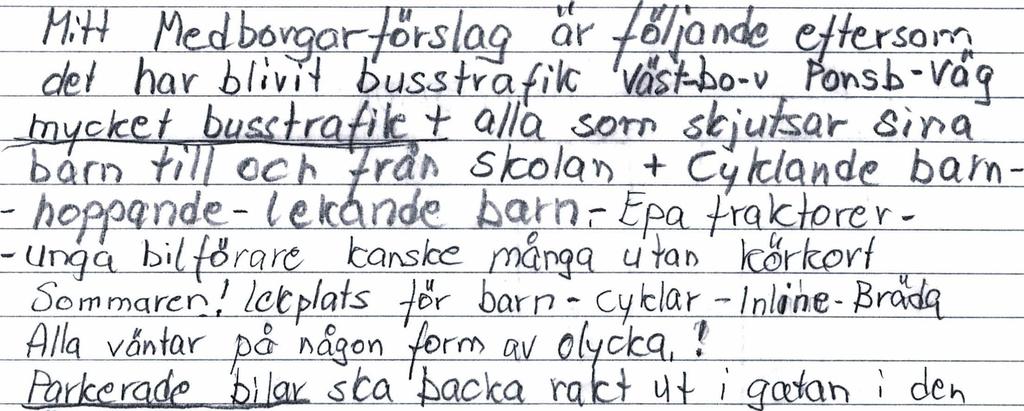 Mitt Medborgarförslag är följande eftersom
det har blivit busstrafik Väst-bo-v Ponsb-Väg
mycket busstrafik + alla som skjutsar sina
barn till och från skolan + Cyklande barn-
- hoppande - lekande barn, - Epa traktorer -
- unga bilförare kanske många utan körkort
Sommaren! lekplats för barn - cyklar - Inline - Bräda
Alla väntar på någon form av olycka, !
Parkerade bilar ska backa rakt ut i gatan i den